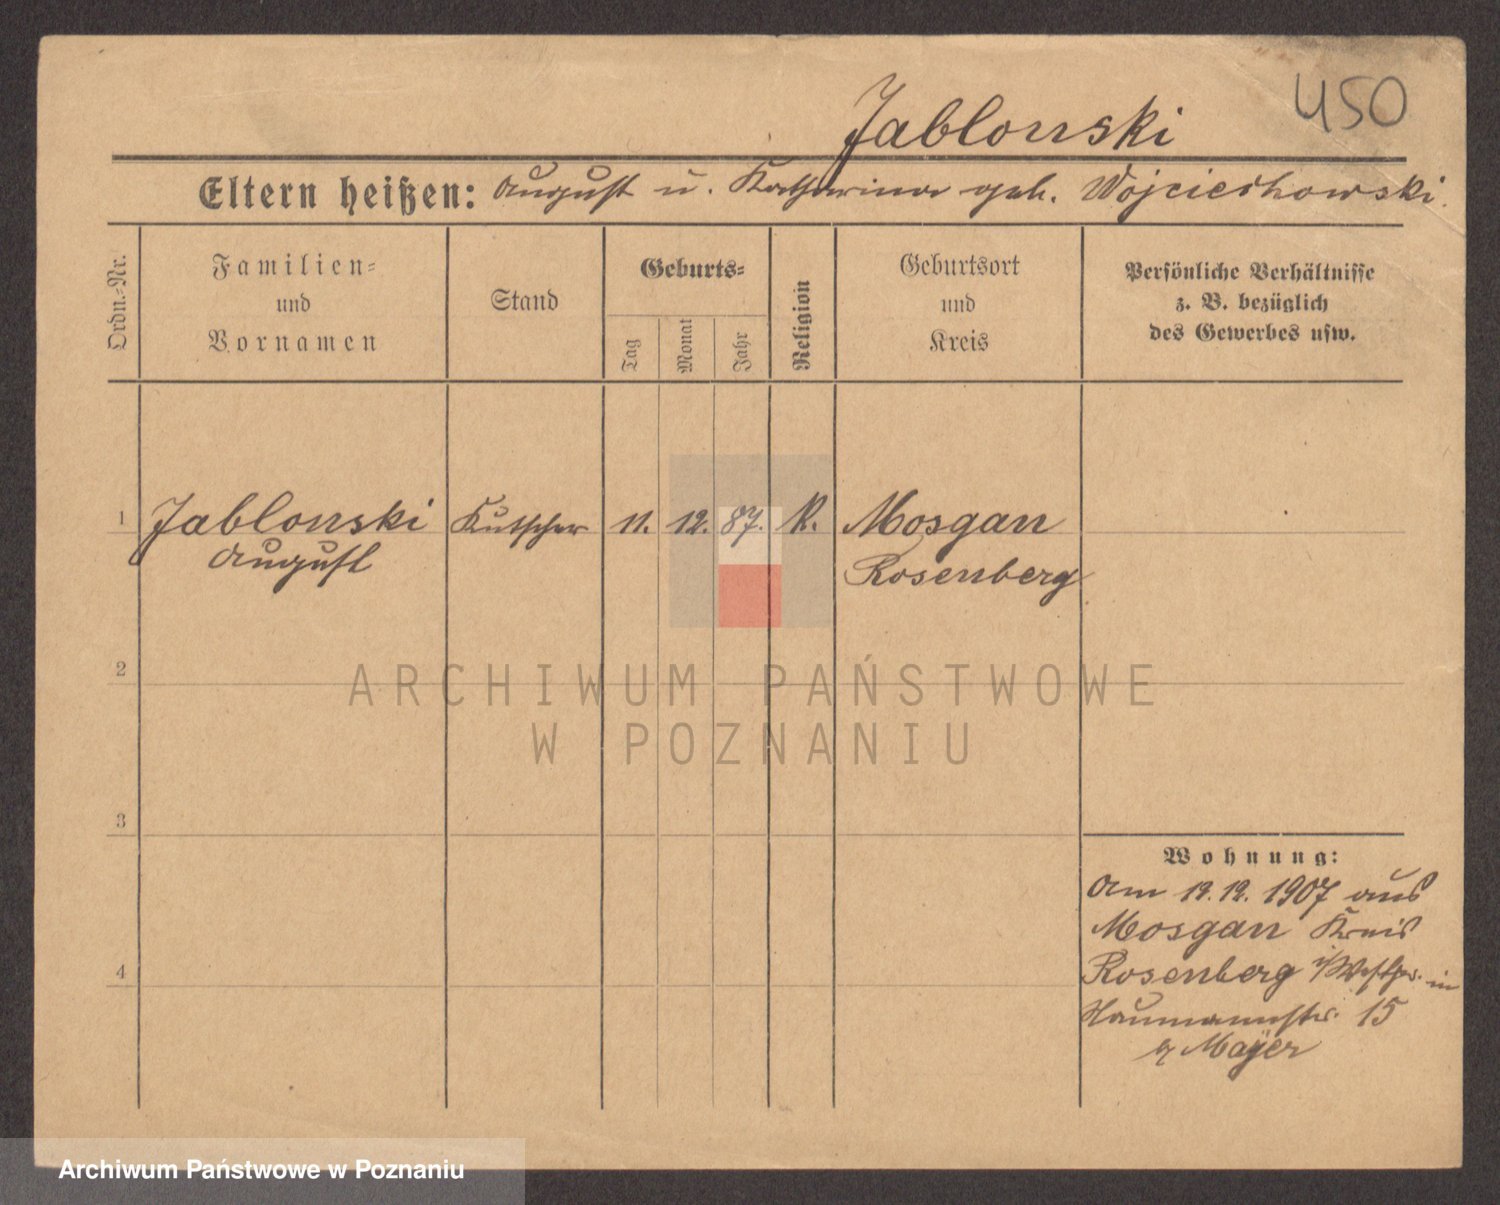 450
Jablonski
Eltern heißen: August u. Katharina geb. Wojciechowski.
Ordn.-Nr.
Familien-
und
Vornamen
Stand
Geburts-
Tag
Monat
Jahr
Religion
Geburtsort
und
Kreis
Persönliche Verhältnisse
z. B. bezüglich
des Gewerbes usw.
1 Jablonski Kutscher 11. 12. 87. K. Mosgau
August Rosenberg
2
ARCHIWUM PAŃSTWOWE
W POZNANIU
3
Wohnung:
Am 12.12. 1907 aus
Mosgau Kreis
4 Rosenberg i/Westpr. in
Naumannstr. 15
b/ Mayer
Archiwum Państwowe w Poznaniu